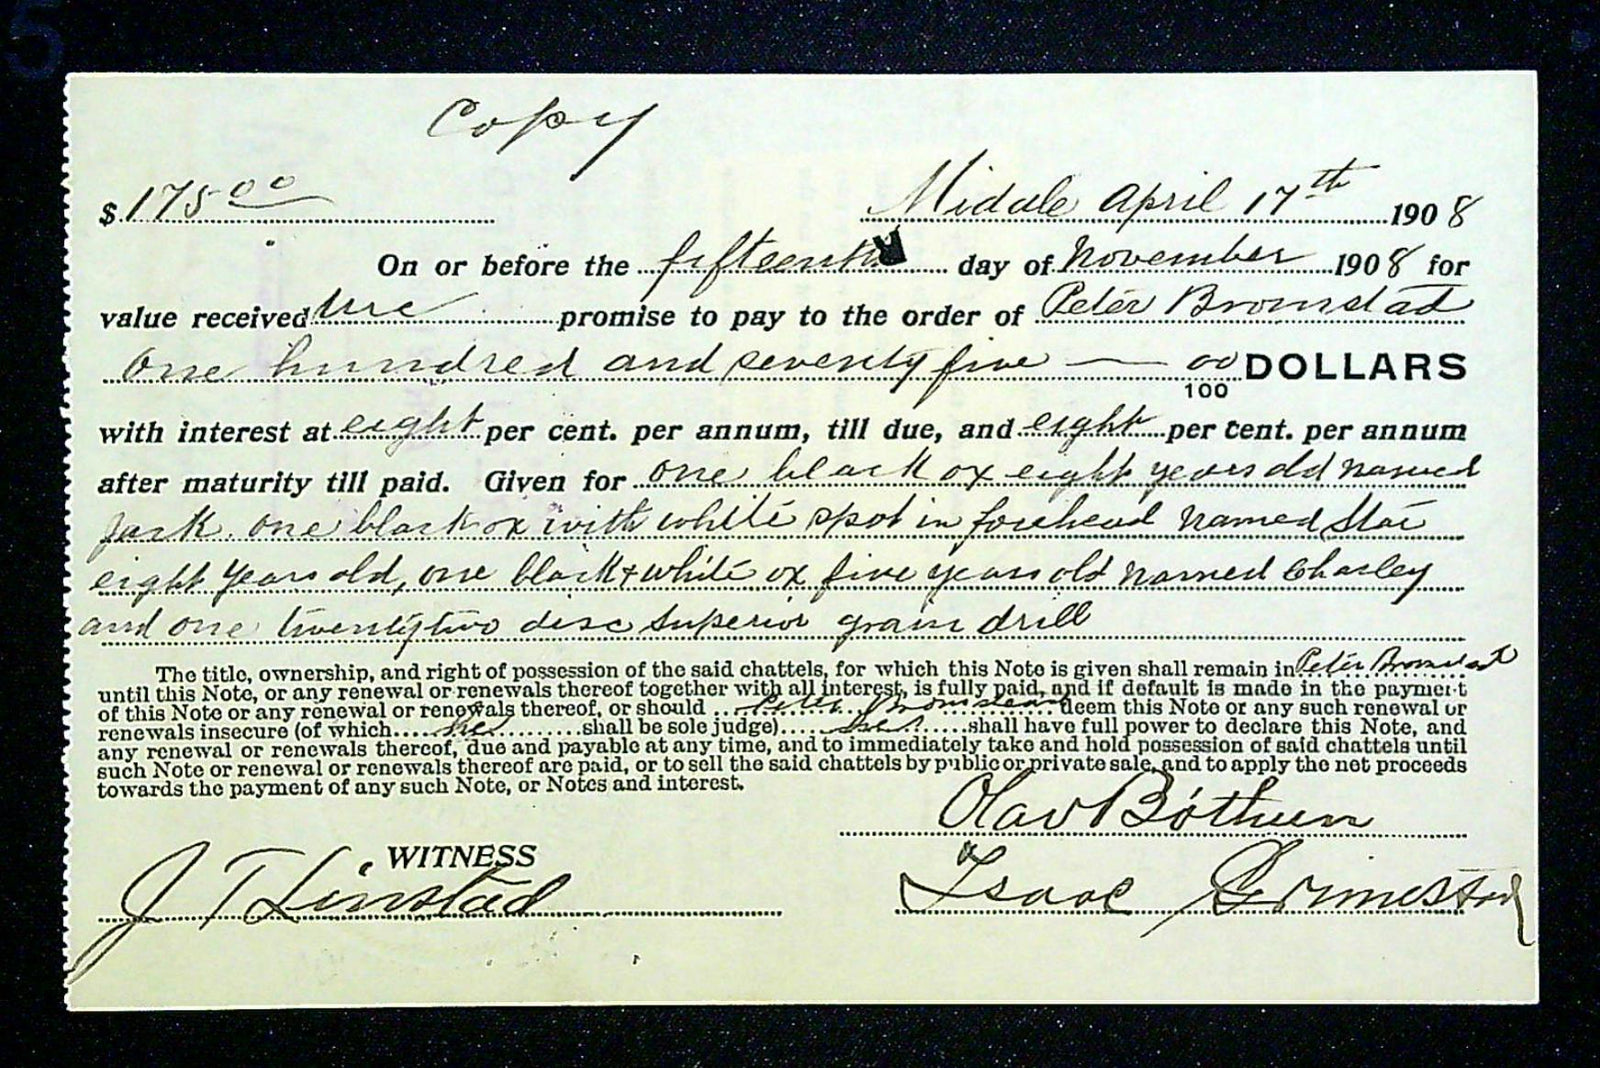 Copy
$ 175.00 Midale April 17th 1908
On or before the fifteenth day of November 1908 for
value received we promise to pay to the order of Peter Bromstad
One hundred and seventy five — 00/100 DOLLARS
with interest at eight per cent. per annum, till due, and eight per cent. per annum
after maturity till paid. Given for one black ox eight years old named
Jack. one black ox with white spot in forehead named Star
eight years old, one black & white ox five years old named Charley
and one twenty two disc Superior grain drill
The title, ownership, and right of possession of the said chattels, for which this Note is given shall remain in Peter Bromstad
until this Note, or any renewal or renewals thereof together with all interest, is fully paid, and if default is made in the payment
of this Note or any renewal or renewals thereof, or should Peter Bromstad deem this Note or any such renewal or
renewals insecure (of which he shall be sole judge) he shall have full power to declare this Note, and
any renewal or renewals thereof, due and payable at any time, and to immediately take and hold possession of said chattels until
such Note or renewal or renewals thereof are paid, or to sell the said chattels by public or private sale, and to apply the net proceeds
towards the payment of any such Note, or Notes and interest.
Olav Bothun
WITNESS
J T Linstad Isaac Grimestad